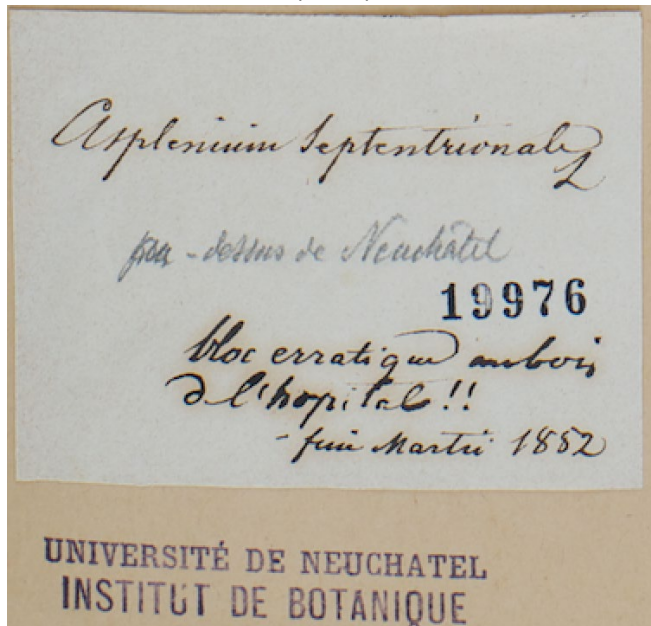 Asplenium Septentrionale L
par-dessus de Neuchâtel
19976
bloc erratique au bois
de l'hopital!!
- fin Martii 1852
UNIVERSITÉ DE NEUCHATEL
INSTITUT DE BOTANIQUE